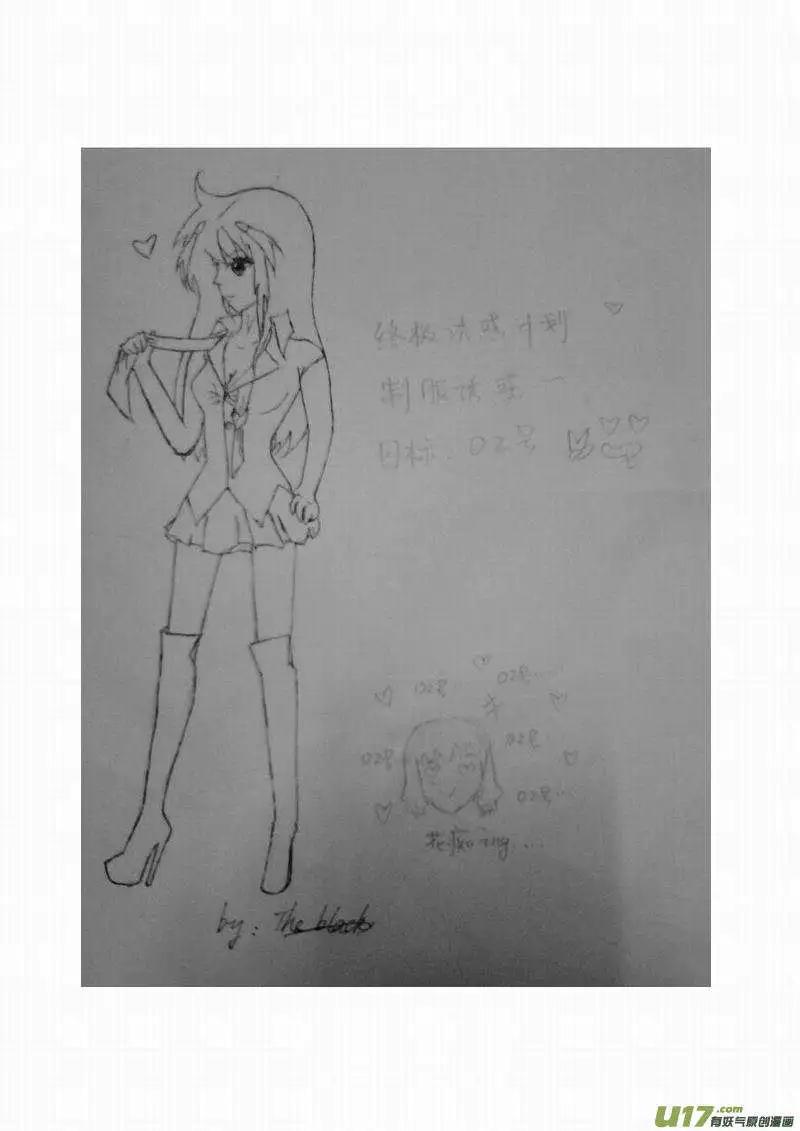 终极诱惑计划
制服诱惑一
目标:02号
02号……
02号……
02号
02号……
02号……
花痴ing……
by: The black
U17.com
有妖气原创漫画